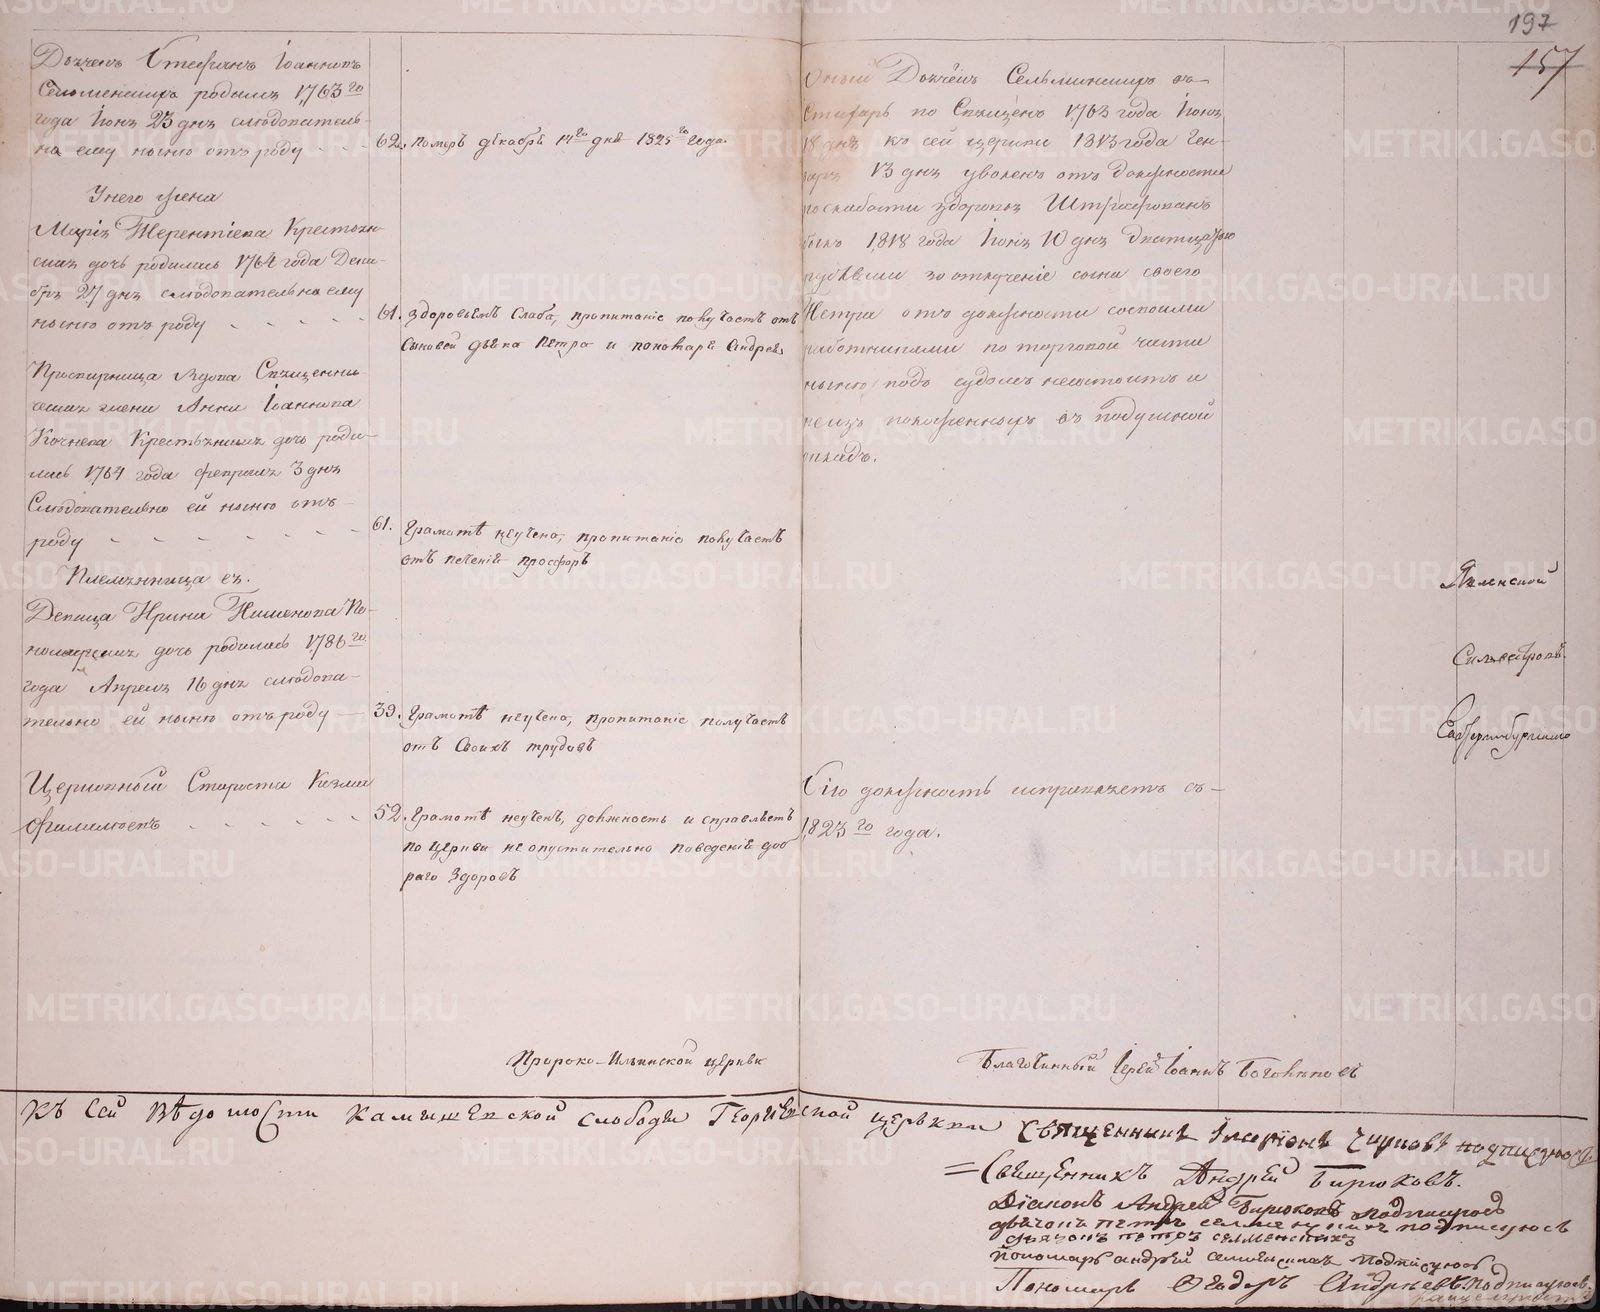 197
157
Дьячекъ Стефанъ Іоанновъ
Селменскихъ родился 1763го
года Іюня 23 дня слѣдователь-
но ему нынѣ отъ роду - - -
62. Померъ декабре 14го дне 1825го года.
У него жена
Марія Терентіева Крестьян-
ская дочь родилась 1764 года Дека-
бря 27 дня слѣдовательно ему
нынѣ отъ роду - - - - -
61. Здоровьемъ слаба, пропитаніе получаетъ отъ
Сыновей дьячка Петра и пономаря Андрея
Просвирница Вдова Священни-
ческая жена Анна Іоаннова
Кочнева Крестьянская дочь роди-
лась 1764 года февраля 3 дня
Слѣдовательно ей нынѣ отъ-
роду - - - - - - -
61. Грамотѣ неучена, пропитаніе получаетъ
отъ печенія просфоръ
Племянница ея.
Девица Ирина По-
номарская дочь родилась 1786го
года Апреля 16 дня слѣдова-
тельно ей нынѣ отъ роду —
39. Грамотѣ неучена, пропитаніе получаетъ
отъ своихъ трудовъ
Церковный Староста Козма
Филимоновъ - - - - - -
52. Грамотѣ неученъ, должность исправляетъ
по церкви неопустительно поведенія доб
раго здоровъ
Оный Дьячекъ Селменскихъ въ
Стихарь посвященъ 1763 года Іюня
18 дня къ сей церкви 1813 года Ген-
варя 13 дня уволенъ отъ должности
по слабости здоровья Штрафованъ
былъ 1818 года Іюня 10 дня дватцатью
рублями за отлученіе сына своего
Петра отъ должности
работниками по торговой части
нынѣ подъ судомъ несостоитъ и
неизъ положенныхъ въ подушной
окладъ.
Сію должность исправляетъ съ-
1823го года.
Яленской
Сильвестровъ.
Екатеринбургскаго
Пророко-Ильинской церкви
Благочинный Іерей Іоаннъ
Къ сей вѣдомости Камышевской слободы Георгіевской церькви Священникъ Іларіонъ Чирковъ подписуюсь
= Священникъ Андрей Бирюковъ.
Діаконъ Андрей Бирюковъ подписуюсь
дьячокъ петръ селменскихъ подписуюсь
дьячокъ петръ селменскихъ
пономарь андрей селменскихъ подписуюсь
Пономарь Ѳедоръ Андреевъ подписуюсь